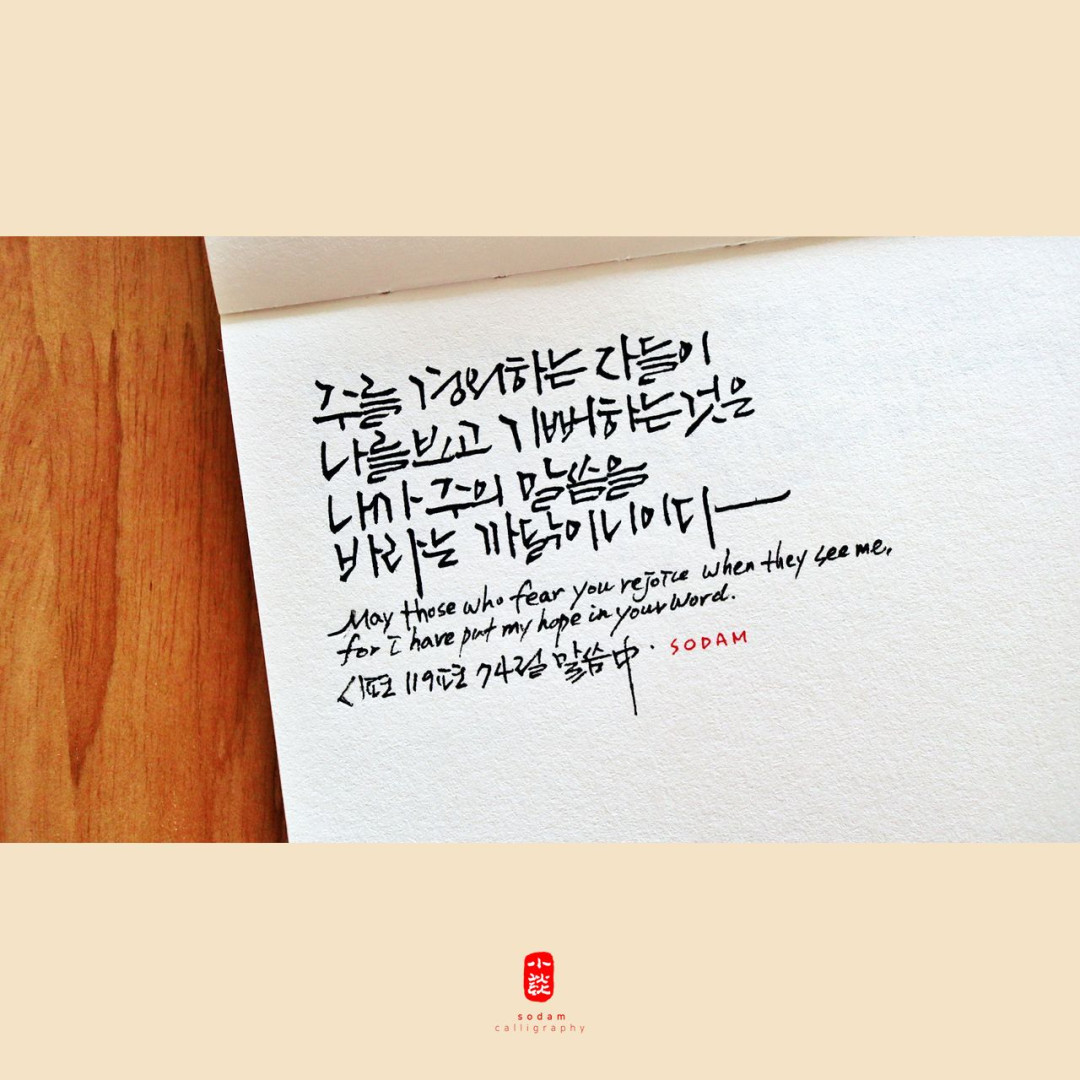 주를 경외하는 자들이
나를 보고 기뻐하는 것은
내가 주의 말씀을
바라는 까닭이니이다
May those who fear you rejoice when they see me,
for I have put my hope in your word.
시편 119편 74절 말씀中. SODAM
小談
sodam
calligraphy